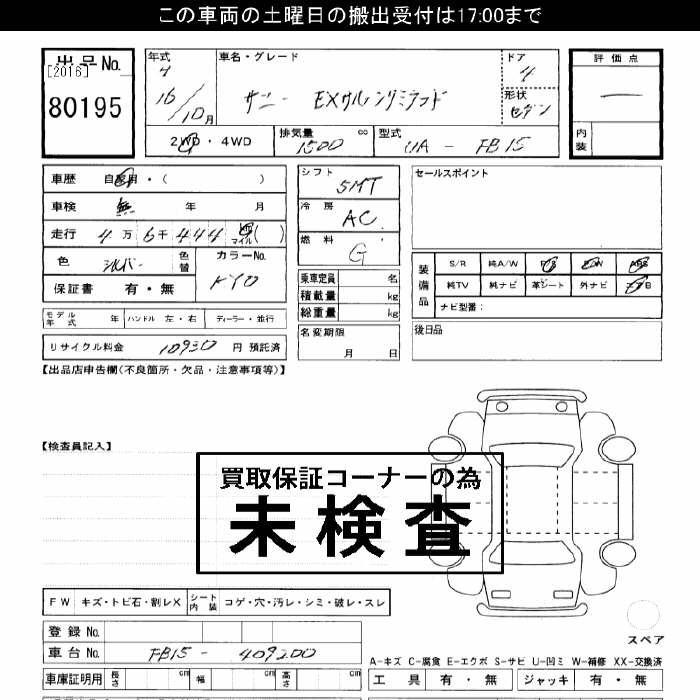 この車両の土曜日の搬出受付は17:00まで
出品No.
[2016]
80195
年式
16/10月
車名・グレード
サニー EXサルーンリミテッド
ドア
4
形状
セダン
評価点
内装
2WD・4WD
排気量
1500
cc
型式
UA - FB15
車歴 自家用・( )
車検 無 年 月
走行 4万6千444 km マイル( )
色 シルバー
色替
カラーNo.
KY0
保証書 有・無
モデル年式 年
ハンドル 左・右
ディーラー・並行
リサイクル料金 10930 円 預託済
シフト
5MT
冷房
AC
燃料
G
乗車定員 名
積載量 kg
総重量 kg
名変期限
月 日
セールスポイント
装備品
S/R 純A/W P/S P/W ABS
純TV 純ナビ 革シート 外ナビ エアB
ナビ型番:
後日品
【出品店申告欄(不良箇所・欠品・注意事項等)】
【検査員記入】
買取保証コーナーの為
未検査
FW キズ・トビ石・割レX
シート内装 コゲ・穴・汚レ・シミ・破レ・スレ
登録No.
車台No. FB15 - 409200
車庫証明用 長さ cm 幅 cm 高さ cm
スペア
A-キズ C-腐食 E-エクボ S-サビ U-凹ミ W-補修 XX-交換済
工具 有・無 ジャッキ 有・無